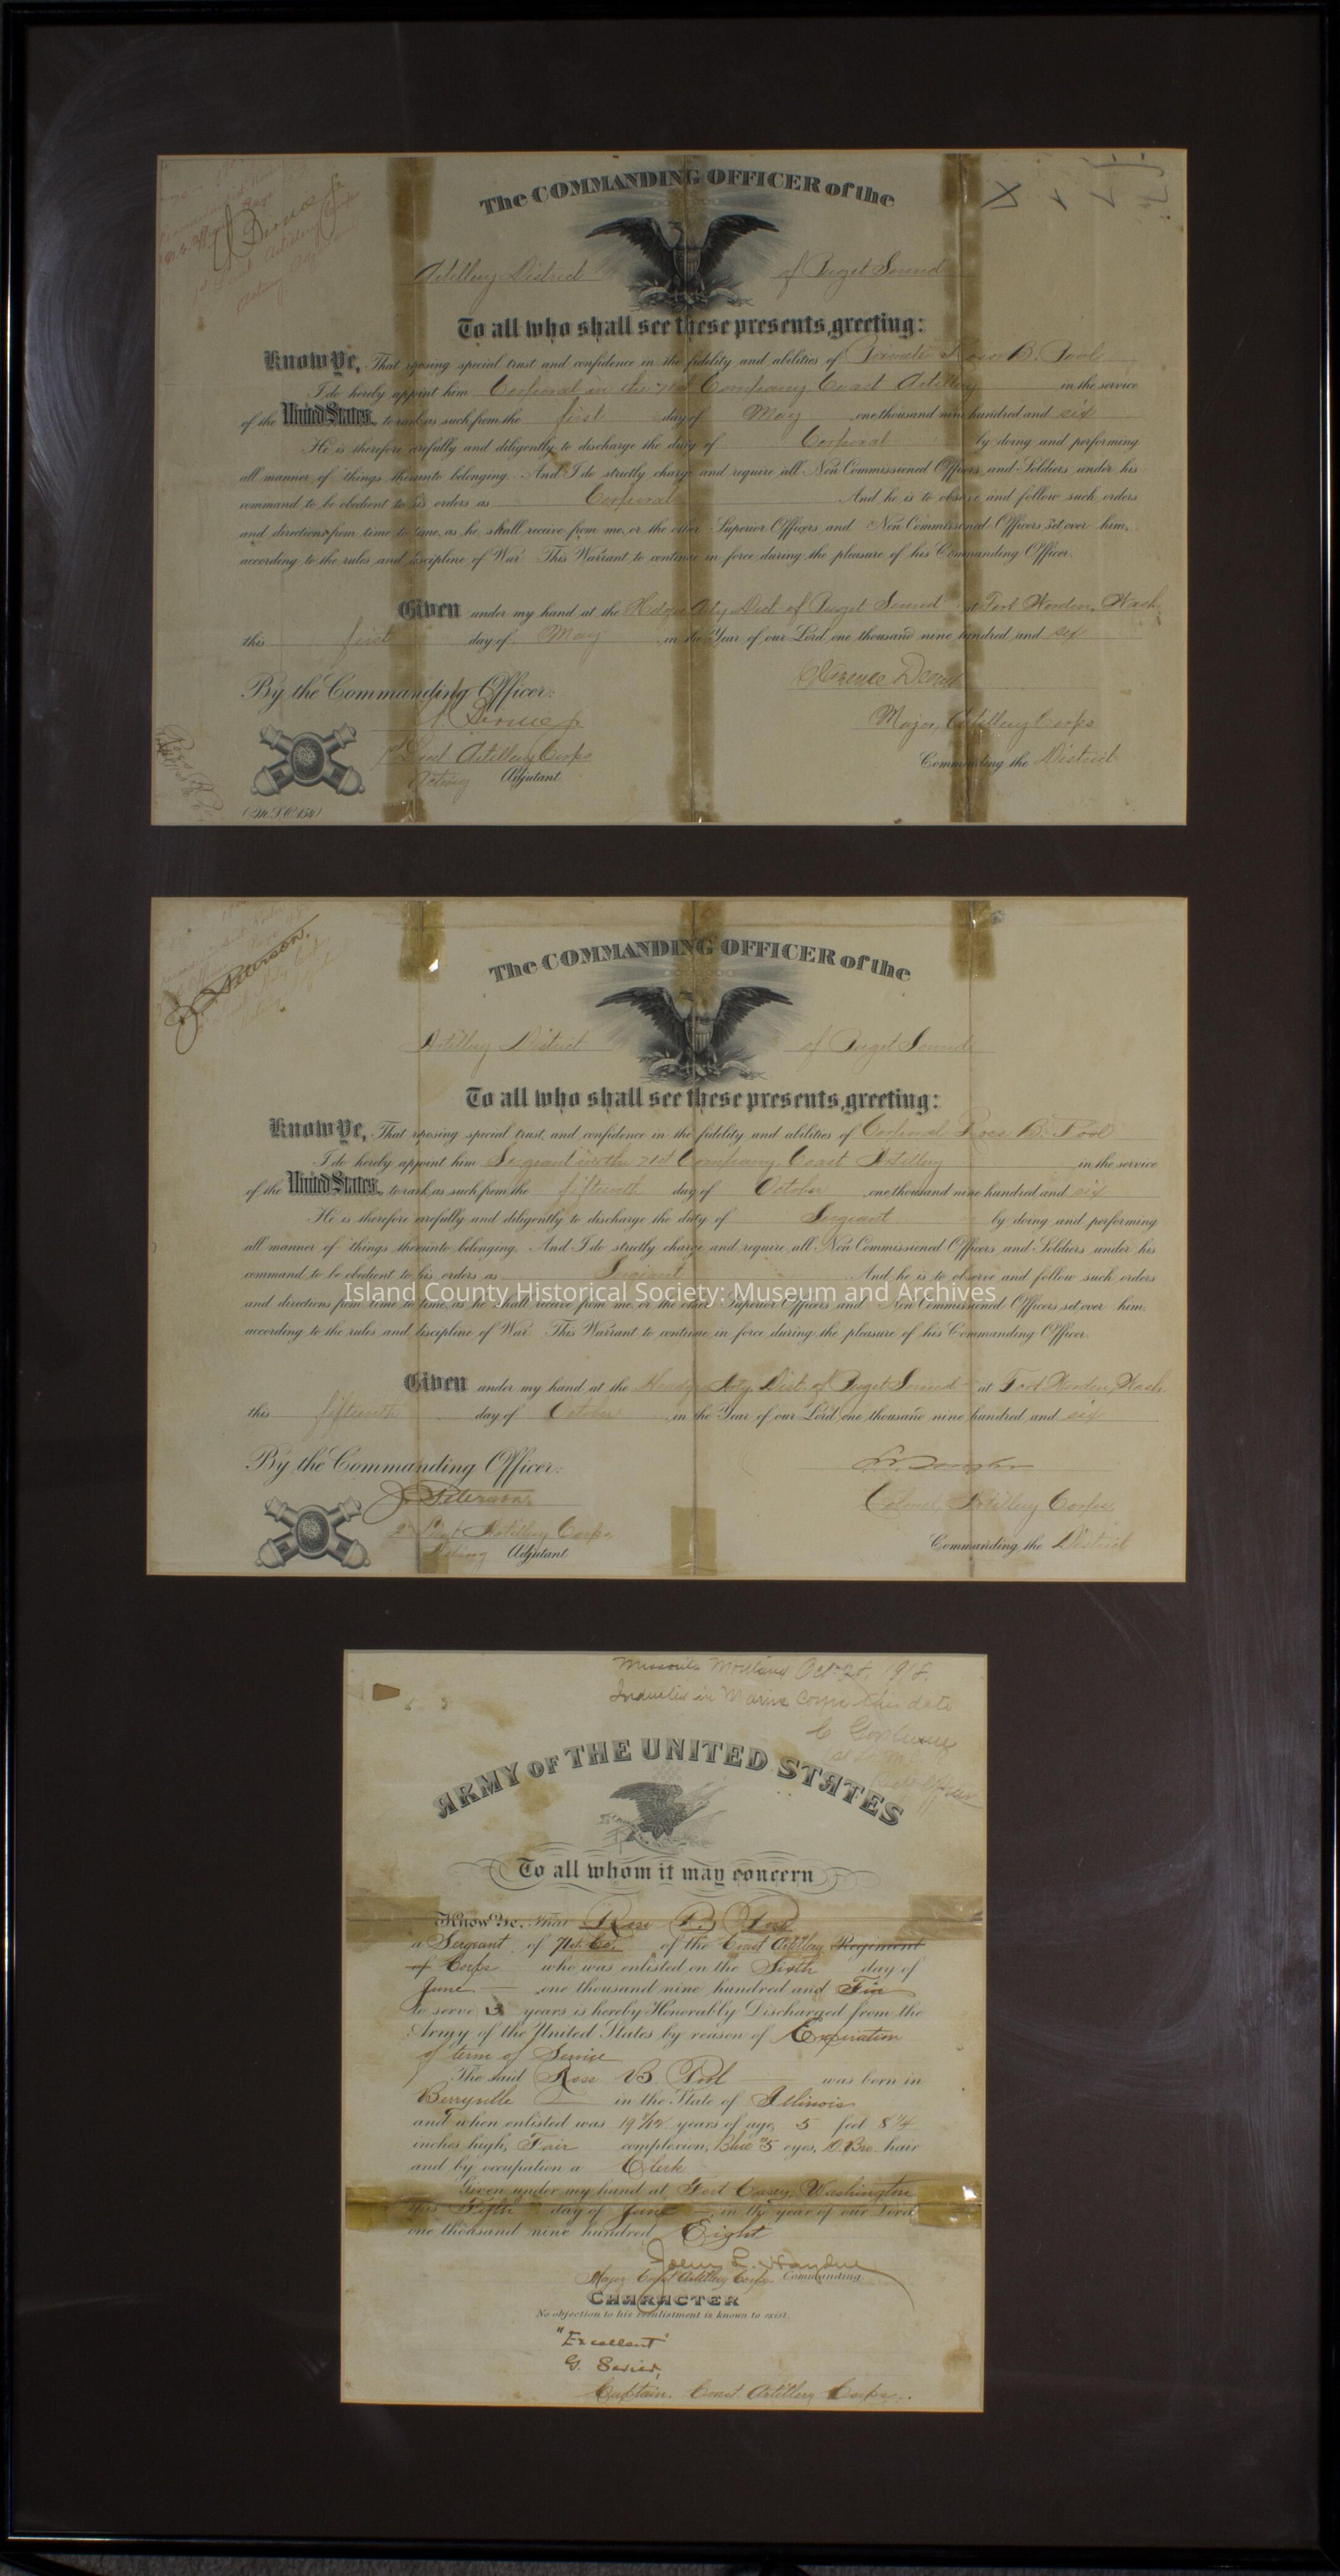 The COMMANDING OFFICER of the
Artillery District of Puget Sound
To all who shall see these presents, greeting:
Know Ye, That reposing special trust and confidence in the fidelity and abilities of Private Ross B. Pool
I do hereby appoint him Corporal in the 71st Company Coast Artillery in the service
of the United States, to rank as such from the first day of May one thousand nine hundred and six
He is therefore carefully and diligently to discharge the duty of Corporal by doing and performing
all manner of things thereunto belonging. And I do strictly charge and require all Non Commissioned Officers and Soldiers under his
command to be obedient to his orders as Corporal And he is to observe and follow such orders
and directions from time to time, as he shall receive from me, or the other Superior Officers and Non Commissioned Officers set over him,
according to the rules and discipline of War. This Warrant to continue in force during the pleasure of his Commanding Officer.
Given under my hand at the Hdqrs Arty Dist. of Puget Sound at Fort Worden, Wash.
this first day of May in the Year of our Lord one thousand nine hundred and six
By the Commanding Officer:
Clarence Deems
1st Lieut Artillery Corps
Major, Artillery Corps
Acting Adjutant
Commanding the District
The COMMANDING OFFICER of the
J. Peterson.
Artillery District of Puget Sound
To all who shall see these presents, greeting:
Know Ye, That reposing special trust and confidence in the fidelity and abilities of Corporal Ross B. Pool
I do hereby appoint him Sergeant in the 71st Company Coast Artillery in the service
of the United States, to rank as such from the fifteenth day of October one thousand nine hundred and six
He is therefore carefully and diligently to discharge the duty of Sergeant by doing and performing
all manner of things thereunto belonging. And I do strictly charge and require all Non Commissioned Officers and Soldiers under his
command to be obedient to his orders as Sergeant And he is to observe and follow such orders
Island County Historical Society: Museum and Archives
and directions from time to time, as he shall receive from me, or the other Superior Officers and Non Commissioned Officers set over him,
according to the rules and discipline of War. This Warrant to continue in force during the pleasure of his Commanding Officer.
Given under my hand at the Hdqrs Arty Dist. of Puget Sound at Fort Worden, Wash.
this fifteenth day of October in the Year of our Lord one thousand nine hundred and six
By the Commanding Officer:
J. Peterson.
Colonel, Artillery Corps,
2d Lieut Artillery Corps,
Acting Adjutant
Commanding the District
Missoula Montana Oct 28, 1918.
Inducted in Marine Corps this date
ARMY OF THE UNITED STATES
To all whom it may concern
Know Ye, That Ross B. Pool
a Sergeant of 71st Co. of the Coast Artillery Regiment
of Corps who was enlisted on the Sixth day of
June one thousand nine hundred and Five
to serve 3 years is hereby Honorably Discharged from the
Army of the United States by reason of Expiration
of term of Service
The said Ross B. Pool was born in
Berryville in the State of Illinois
and when enlisted was 19 3/12 years of age, 5 feet 8 1/4
inches high, Fair complexion, Blue #5 eyes, D. Bro. hair
and by occupation a Clerk
Given under my hand at Fort Casey, Washington
this Fifth day of June in the year of our Lord
one thousand nine hundred Eight
Major Coast Artillery Corps Commanding
CHARACTER
No objection to his reenlistment is known to exist.
"Excellent"
G. Sevier,
Captain. Coast Artillery Corps.